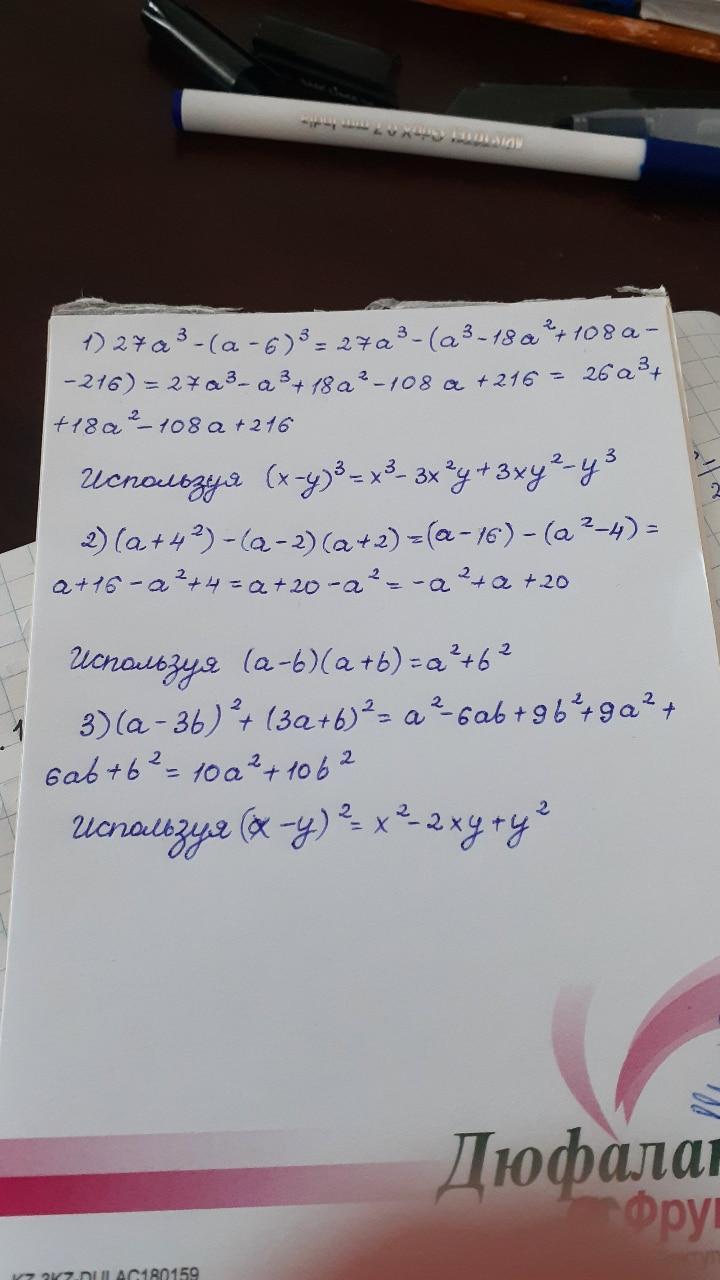 1) 27a³-(a-6)³= 27a³-(a³-18a²+108a-
-216)=27a³-a³+18a²-108a+216= 26a³+
+18a²-108a+216
Используя (x-y)³=x³-3x²y+3xy²-y³
2)(a+4²)-(a-2)(a+2)=(a-16)-(a²-4)=
a+16-a²+4=a+20-a²=-a²+a+20
Используя (a-b)(a+b)=a²+b²
3)(a-3b)²+(3a+b)²=a²-6ab+9b²+9a²+
6ab+b²=10a²+10b²
Используя (x-y)²=x²-2xy+y²
Дюфалак
Фру
KZ-3KZ-DULAC180159